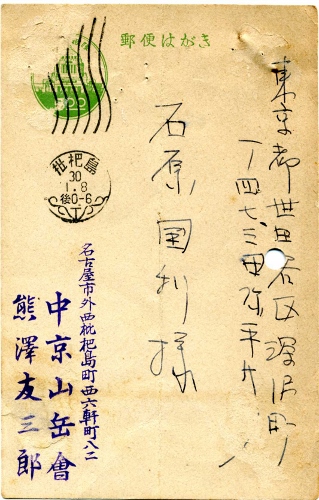 郵便はがき
500
東京都世田谷区深沢町
一ノ四七、三田弥平方
石原国利様
枇杷島
30
1.8
後0-6
名古屋市外西枇杷島町西六軒町八二
中京山岳會
熊澤友三郎